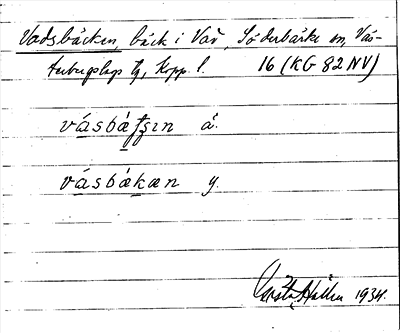 Vadsbäcken, bäck i Vad, Söderbärke sn, Väs-
terbergslags tg, Kopp. l. 16 (KG 82 NV)
vásbäʈʂɪn ä.
vásbäkæn y.
Gösta Hallén 1934.